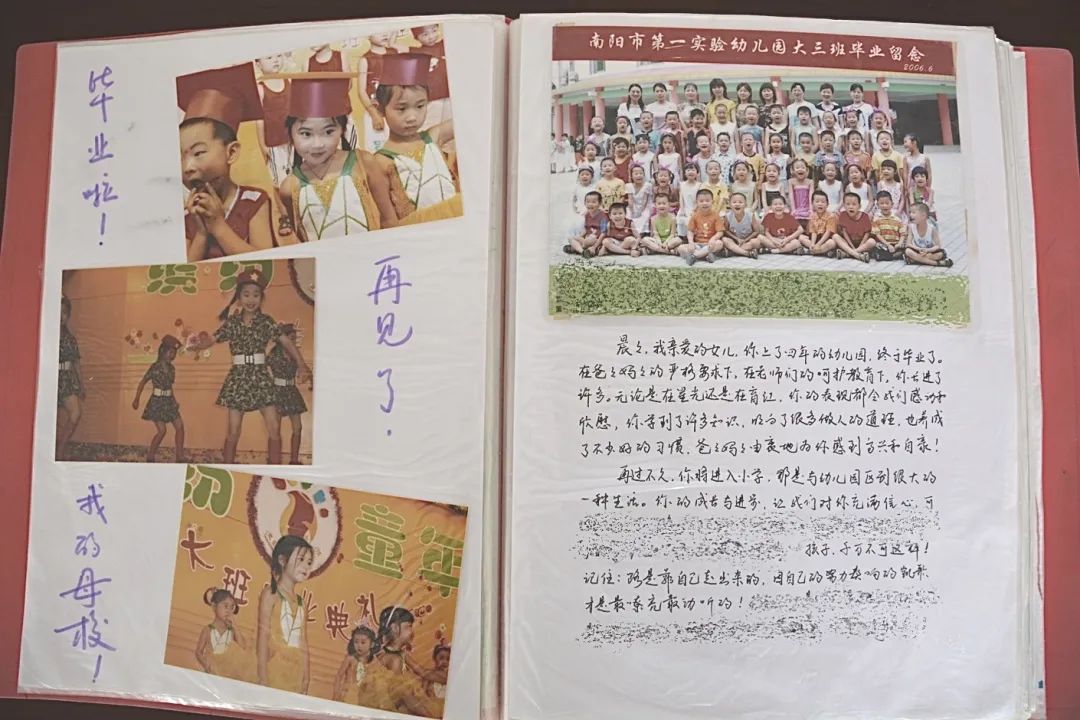 毕业啦！
再见了.
我的母校！
童年
大班毕业典礼
南阳市第一实验幼儿园大三班毕业留念
2006.6
晨々，我亲爱的女儿，你上了四年的幼儿园，终于毕业了。
在爸々妈々的严格要求下，在老师们的呵护教育下，你长进了
许多。无论是在星光还是在育红，你的表现都令我们感动和
欣慰，你学到了许多知识，明白了很多做人的道理，也养成
了不少好的习惯，爸々妈々由衷地为你感到高兴和自豪！
再过不久，你将进入小学，那是与幼儿园区别很大的
一种生活。你的成长与进步，让我们对你充满信心，可
孩子，千万不可这样！
记住：路是靠自己走出来的，用自己的努力奏响的凯歌
才是最嘹亮最动听的！